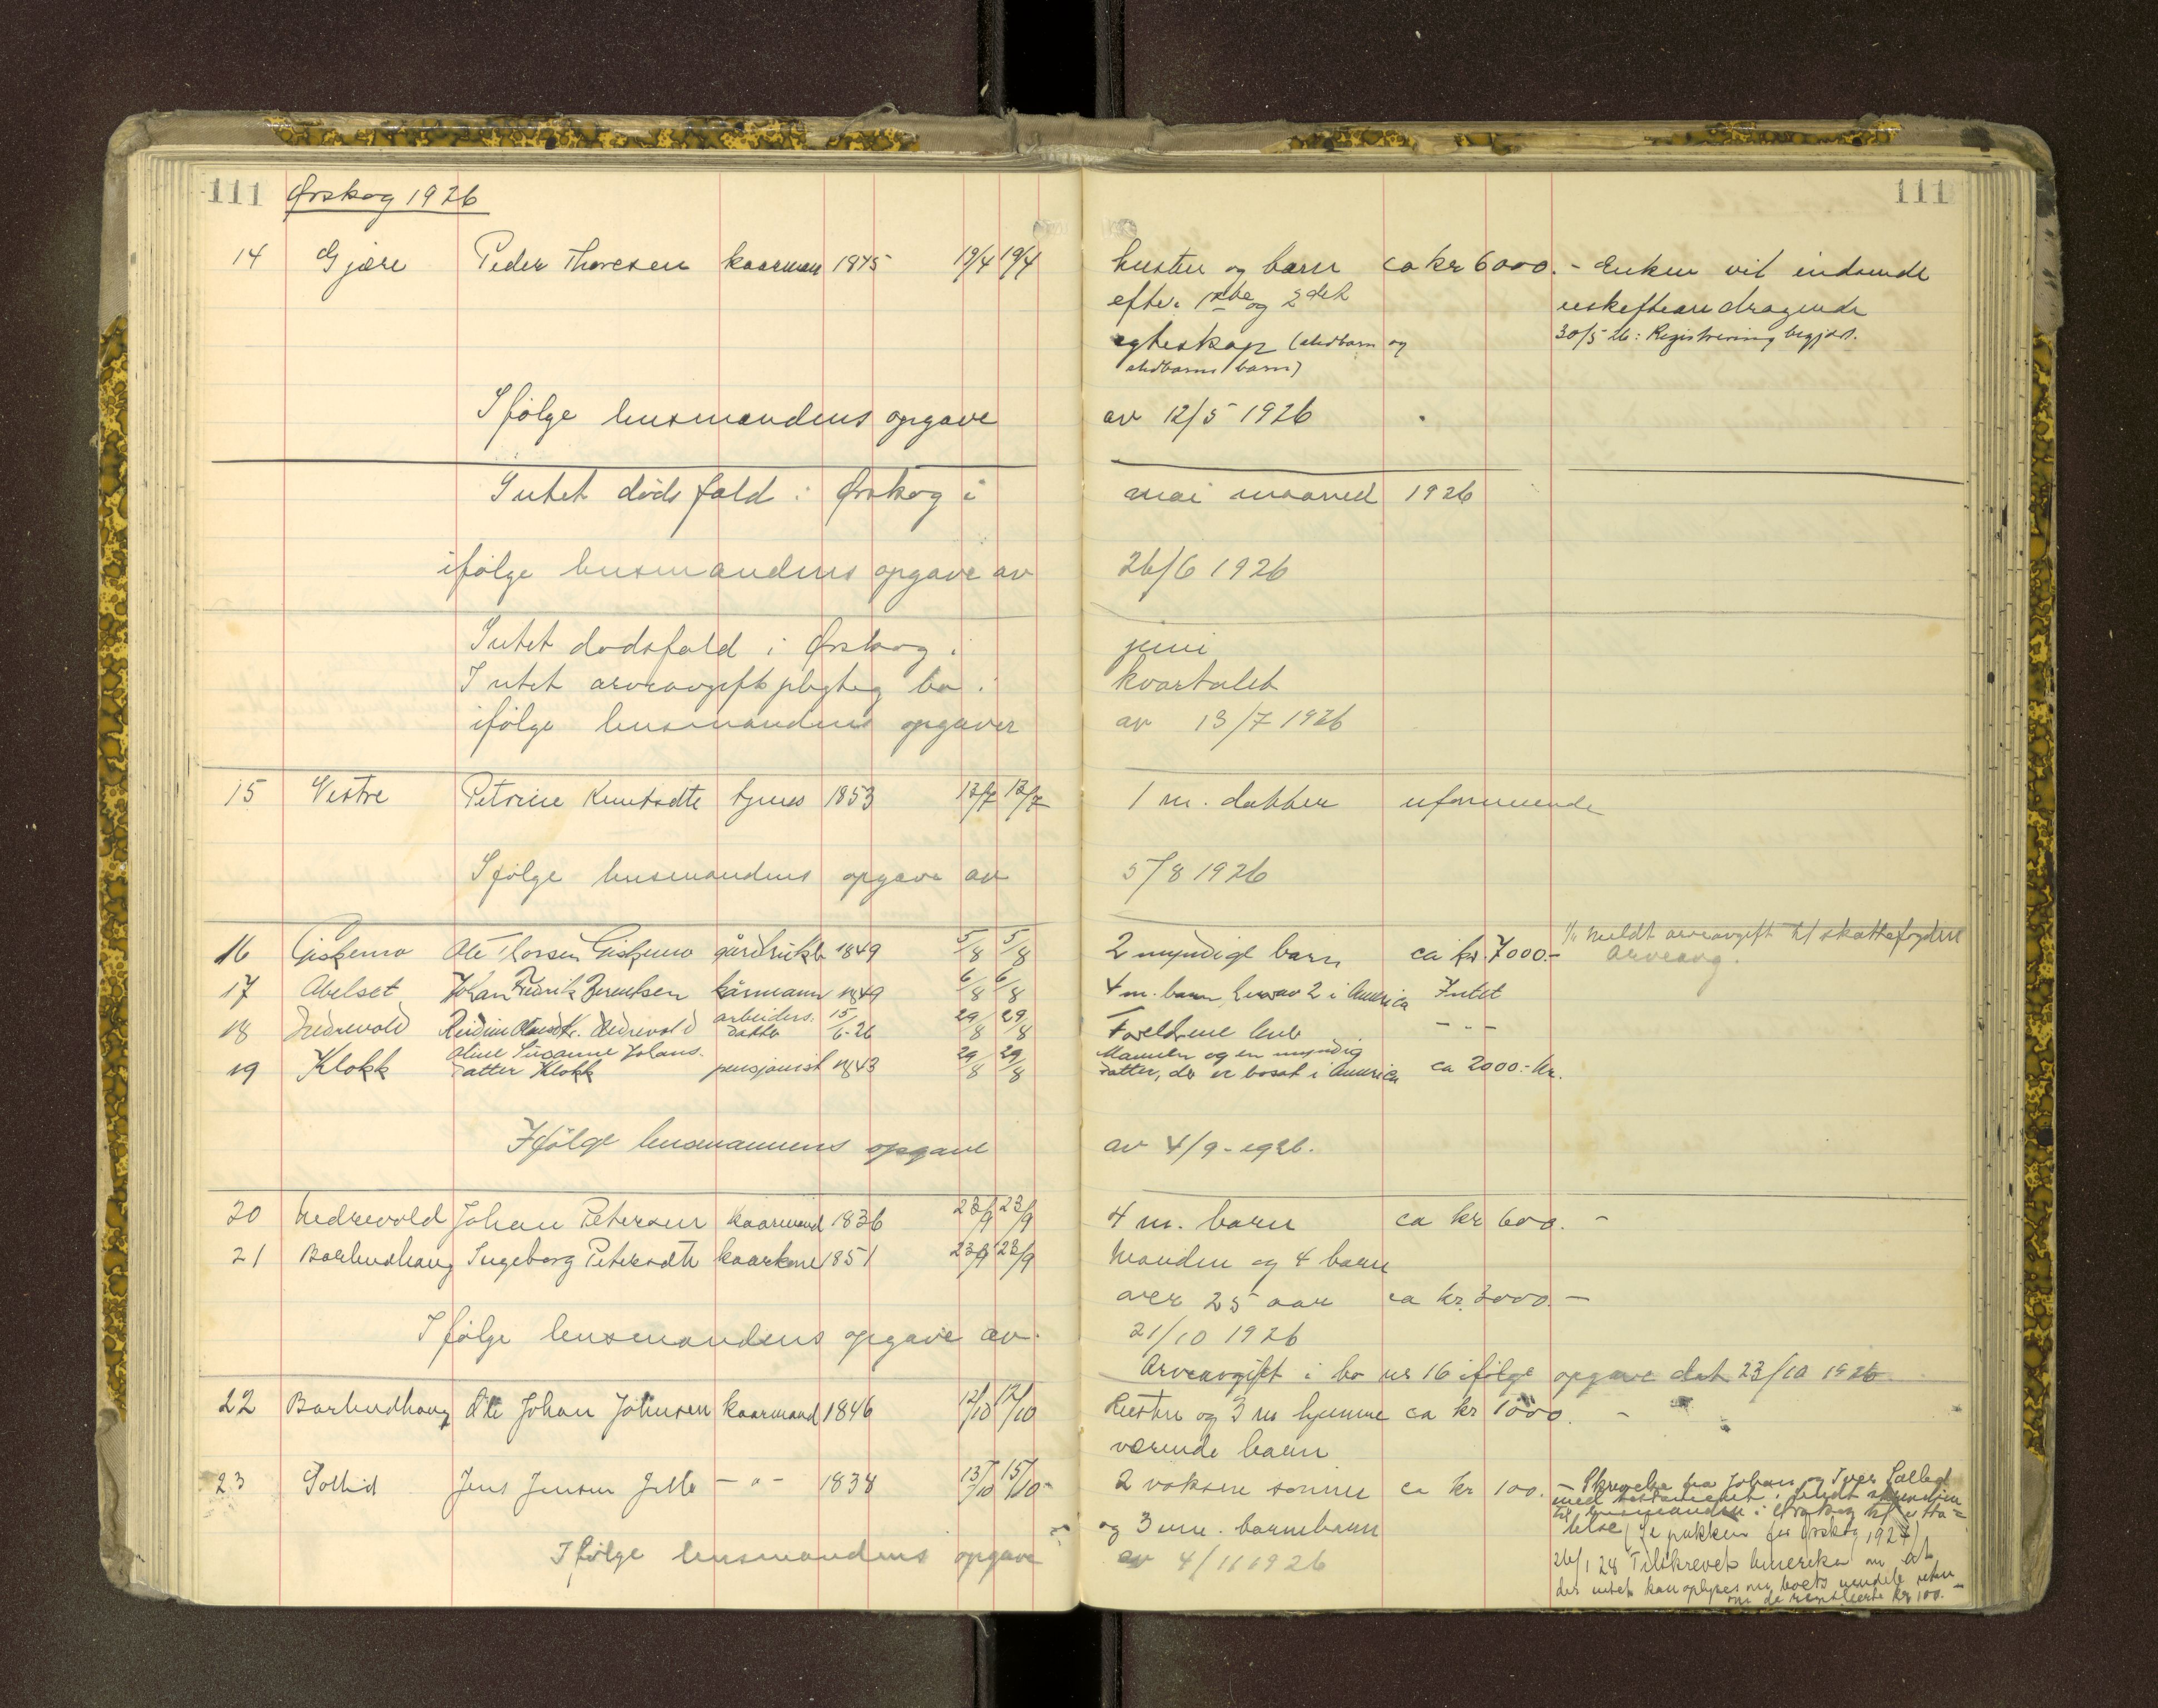 111 Ørskog 1926 111
14 Gjære Peder Thoresen kaarmann 1845 19/4 19/4 hustru og barn ca kr 6000.- Enken vil indsende
efter 1ste og 2det
egteskap (stedbarn og 30/5 26: Registrering begjært.
stedbarns barn)
Ifølge lensmandens opgave av 12/5 1926
Intet dødsfald i Ørskog i mai maaned 1926
ifølge lensmandens opgave av 26/6 1926
Intet dødsfald i Ørskog i juni
Intet arveavgiftspligtig bo i kvartalet
ifølge lensmandens opgaver av 13/7 1926
15 Vestre Petrine Knutsdtr 1853 12/7 12/7 1 m. datter uformuende
Ifølge lensmandens opgave av 5/8 1926
1/4 meldt arveavgift t/ skattefogden
16 Giskemo Ole Thorsen Giskemo gårdbruker 1849 5/8 5/8 2 myndige barn ca kr. 7000.- Arveavg.
17 Abelset Johan Fredrik Berentsen kårmann 1849 6/8 6/8 4 m. barn herav 2 i Amerika Intet
18 Nedrevold Reidun Nedrevold arbeiders datter 15/6-26 29/8 29/8 Foreldrene lever - - -
19 Klokk Oline Susanne Johansdatter Klokk pensjonist 1843 29/8 29/8 Mannen og en myndig
datter, der er bosat i Amerika ca 2000.- kr.
Ifølge lensmannens opgave av 4/9-1926.
20 Nedrevold Johan Petersen kaarmand 1836 23/9 23/9 4 m. barn ca kr 600.-
21 Barlindhaug Ingeborg Petersdtr kaarkone 1851 23/9 23/9 Manden og 4 barn
over 25 aar ca kr. 3000.-
Ifølge lensmandens opgave av 21/10 1926
Arveavgift i bo nr 16 ifølge opgave dat 23/10 1926
22 Barlindhaug Ole Johan Johnsen kaarmand 1846 12/10 12/10 Hustru og 3 m hjemme ca kr 1000.-
værende barn
23 Sollid Jens Jensen - " - 1838 15/10 2 voksne sønner ca kr 100.- Skrivelse fra Johan og Iver
og 3 barnebarn
(Se pakken for Ørskog 1927)
Ifølge lensmandens opgave av 4/11 1926
26/1 28 Tilskrevet Amerika om at
der intet kan oplyses om boets
kr 100.-